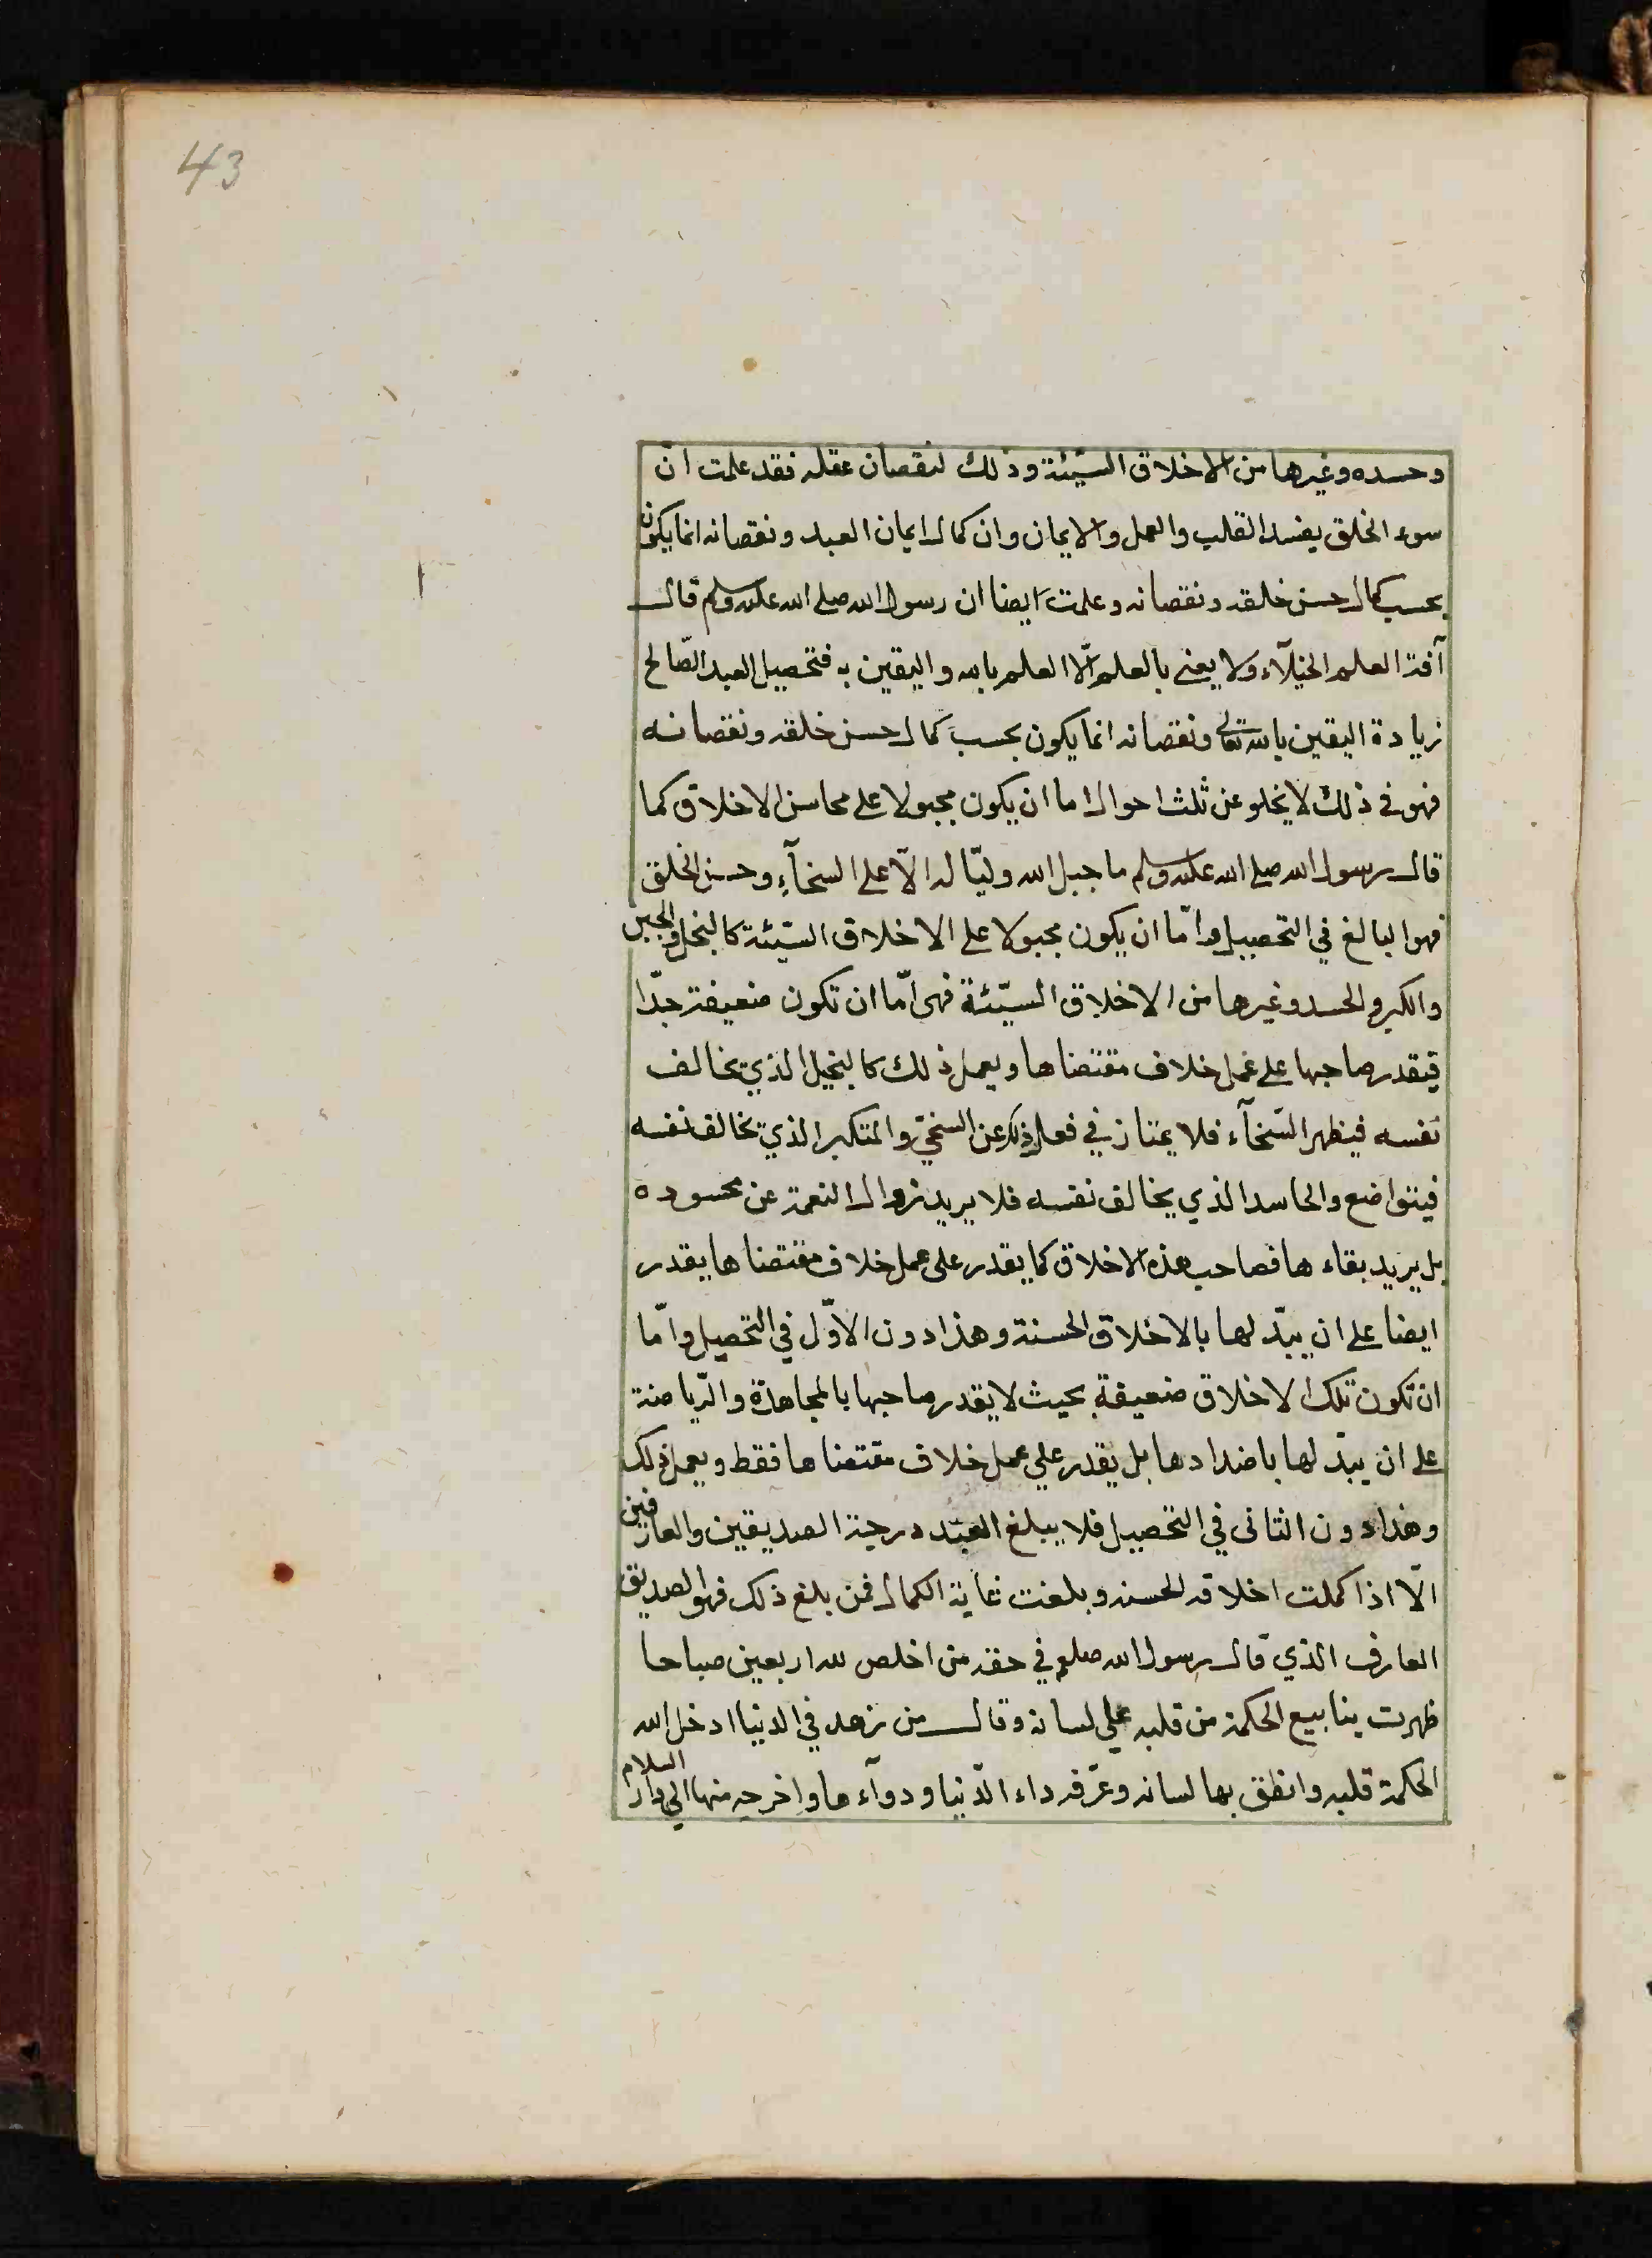 43
وحسده وغيرها من الاخلاق السّيّئة وذلك لنقصان عقله فقد علمت انّ
سوء الخلق يفسد القلب والعمل والايمان وان كمال ايمان العبد ونقصانه انما يكون
بحسب كمال حسن خلقه ونقصانه وعلمت ايضا ان رسول الله صلى الله عليه وسلم قال
آفة العلم الخيلآء ولا يعنى بالعلم الّا العلم بالله واليقين به فتحصيل العبد الصّالح
زيادة اليقين بالله تعالى ونقصانه انما يكون بحسب كمال حسن خلقه ونقصانه
فهو في ذلك لا يخلو عن ثلث احوال اما ان يكون مجبولا على محاسن الاخلاق كما
قال رسول الله صلى الله عليه وسلم ما جبل الله وليّا له الّا على السخآء وحسن الخلق
فهو البالغ في التحصيل وامّا ان يكون مجبولا على الاخلاق السّيّئة كالبخل والجبن
والكبر والحسد وغيرها من الاخلاق السّيّئة فهى امّا ان تكون ضعيفة جدّا
فيقدر صاحبها على عمل خلاف مقتضاها ويعمل ذلك كالبخيل الذي يخالف
نفسه فيظهر السّخآء فلا يمتاز في فعله ذلك عن السخيّ والمتكبر الذي يخالف نفسه
فيتواضع والحاسد الذي يخالف نفسه فلا يريد زوال النعمة عن محسوده
بل يريد بقاءها فصاحب هذه الاخلاق كما يقدر على عمل خلاف مقتضاها يقدر
ايضا على ان يبدّلها بالاخلاق الحسنة وهذا دون الاوّل في التحصيل وامّا
ان تكون تلك الاخلاق ضعيفة بحيث لا يقدر صاحبها بالمجاهدة والرّياضة
على ان يبدّلها باضدادها بل يقدر علي عمل خلاف مقتضاها فقط ويعمل ذلك
وهذا دون الثانى في التحصيل فلا يبلغ العبد درجة الصديقين والعارفين
الّا اذا كملت اخلاقه الحسنه وبلغت غاية الكمال فمن بلغ ذلك فهو الصديق
العارف الذي قال رسول الله صلعم في حقه من اخلص لله اربعين صباحا
ظهرت ينابيع الحكمة من قلبه علي لسانه وقال من زهد في الدنيا ادخل الله
الحكمة قلبه وانطق بها لسانه وعرّفه داء الدّنيا ودوآءها واخرجه منها الي دار السلام